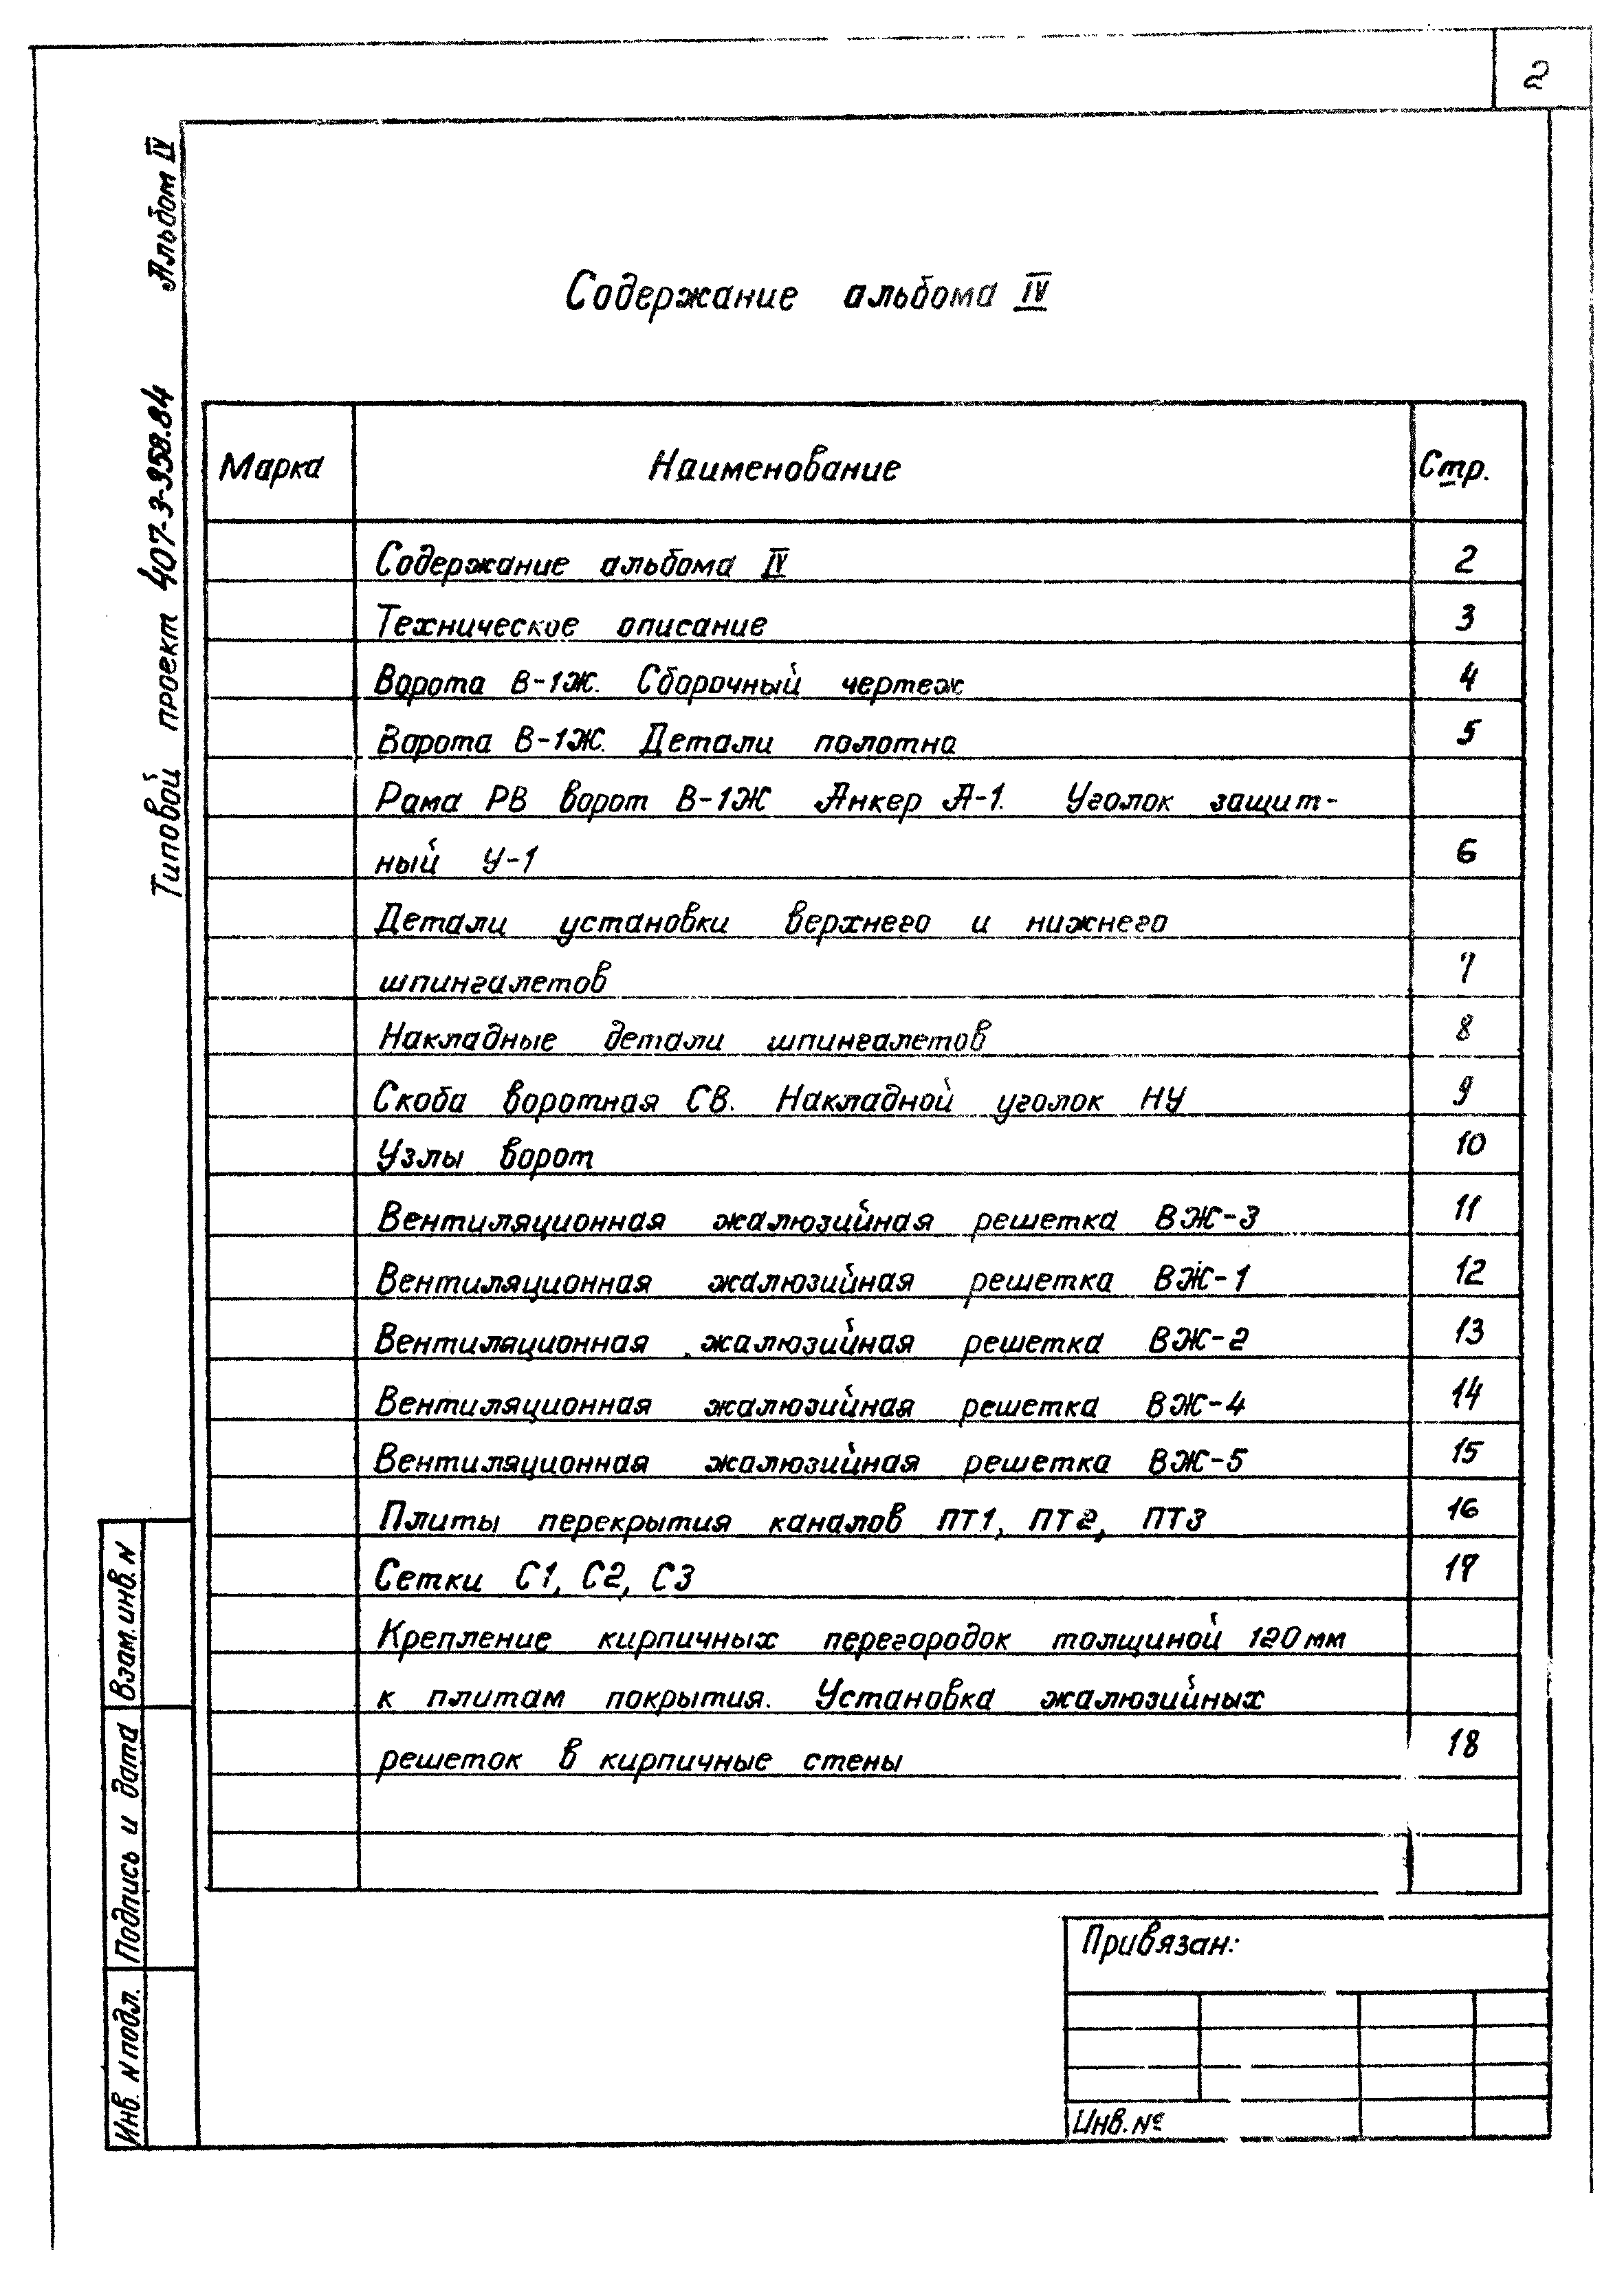 2
Типовой проект 407-3-358.84 Альбом IV
Содержание альбома IV
Марка Наименование Стр.
Содержание альбома IV 2
Техническое описание 3
Ворота В-1Ж. Сборочный чертеж 4
Ворота В-1Ж. Детали полотна 5
Рама РВ ворот В-1Ж Анкер А-1. Уголок защит-
ный У-1 6
Детали установки верхнего и нижнего
шпингалетов 7
Накладные детали шпингалетов 8
Скоба воротная СВ. Накладной уголок НУ 9
Узлы ворот 10
Вентиляционная жалюзийная решетка ВЖ-3 11
Вентиляционная жалюзийная решетка ВЖ-1 12
Вентиляционная жалюзийная решетка ВЖ-2 13
Вентиляционная жалюзийная решетка ВЖ-4 14
Вентиляционная жалюзийная решетка ВЖ-5 15
Плиты перекрытия каналов ПТ1, ПТ2, ПТ3 16
Сетки С1, С2, С3 17
Крепление кирпичных перегородок толщиной 120мм
к плитам покрытия. Установка жалюзийных
решеток в кирпичные стены 18
Привязан:
Инв. №
Взам. инв. N
Подпись и дата
Инв. N подл.